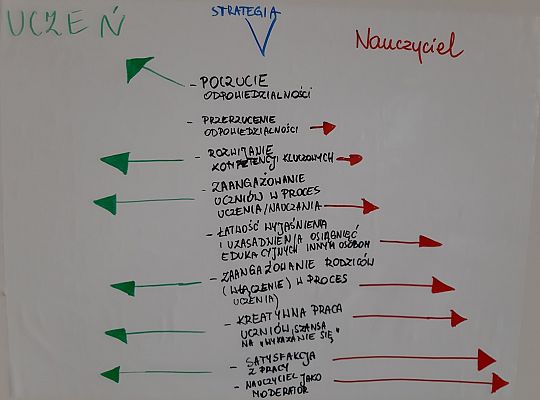 UCZEŃ
STRATEGIA
Nauczyciel
- POCZUCIE
ODPOWIEDZIALNOŚCI
- PRZERZUCENIE
ODPOWIEDZIALNOŚCI
- ROZWIJANIE
KOMPETENCJI KLUCZOWYCH
- ZAANGAŻOWANIE
UCZNIÓW W PROCES
UCZENIA/NAUCZANIA
- ŁATWOŚĆ WYJAŚNIENIA
I UZASADNIENIA OSIĄGNIĘĆ
EDUKACYJNYCH INNYM OSOBOM
- ZAANGAŻOWANIE RODZICÓW
(WŁĄCZENIE) W PROCES
UCZENIA)
- KREATYWNA PRACA
UCZNIÓW, SZANSA
NA „WYKAZANIE SIĘ"
- SATYSFAKCJA
Z PRACY
- NAUCZYCIEL JAKO
MODERATOR